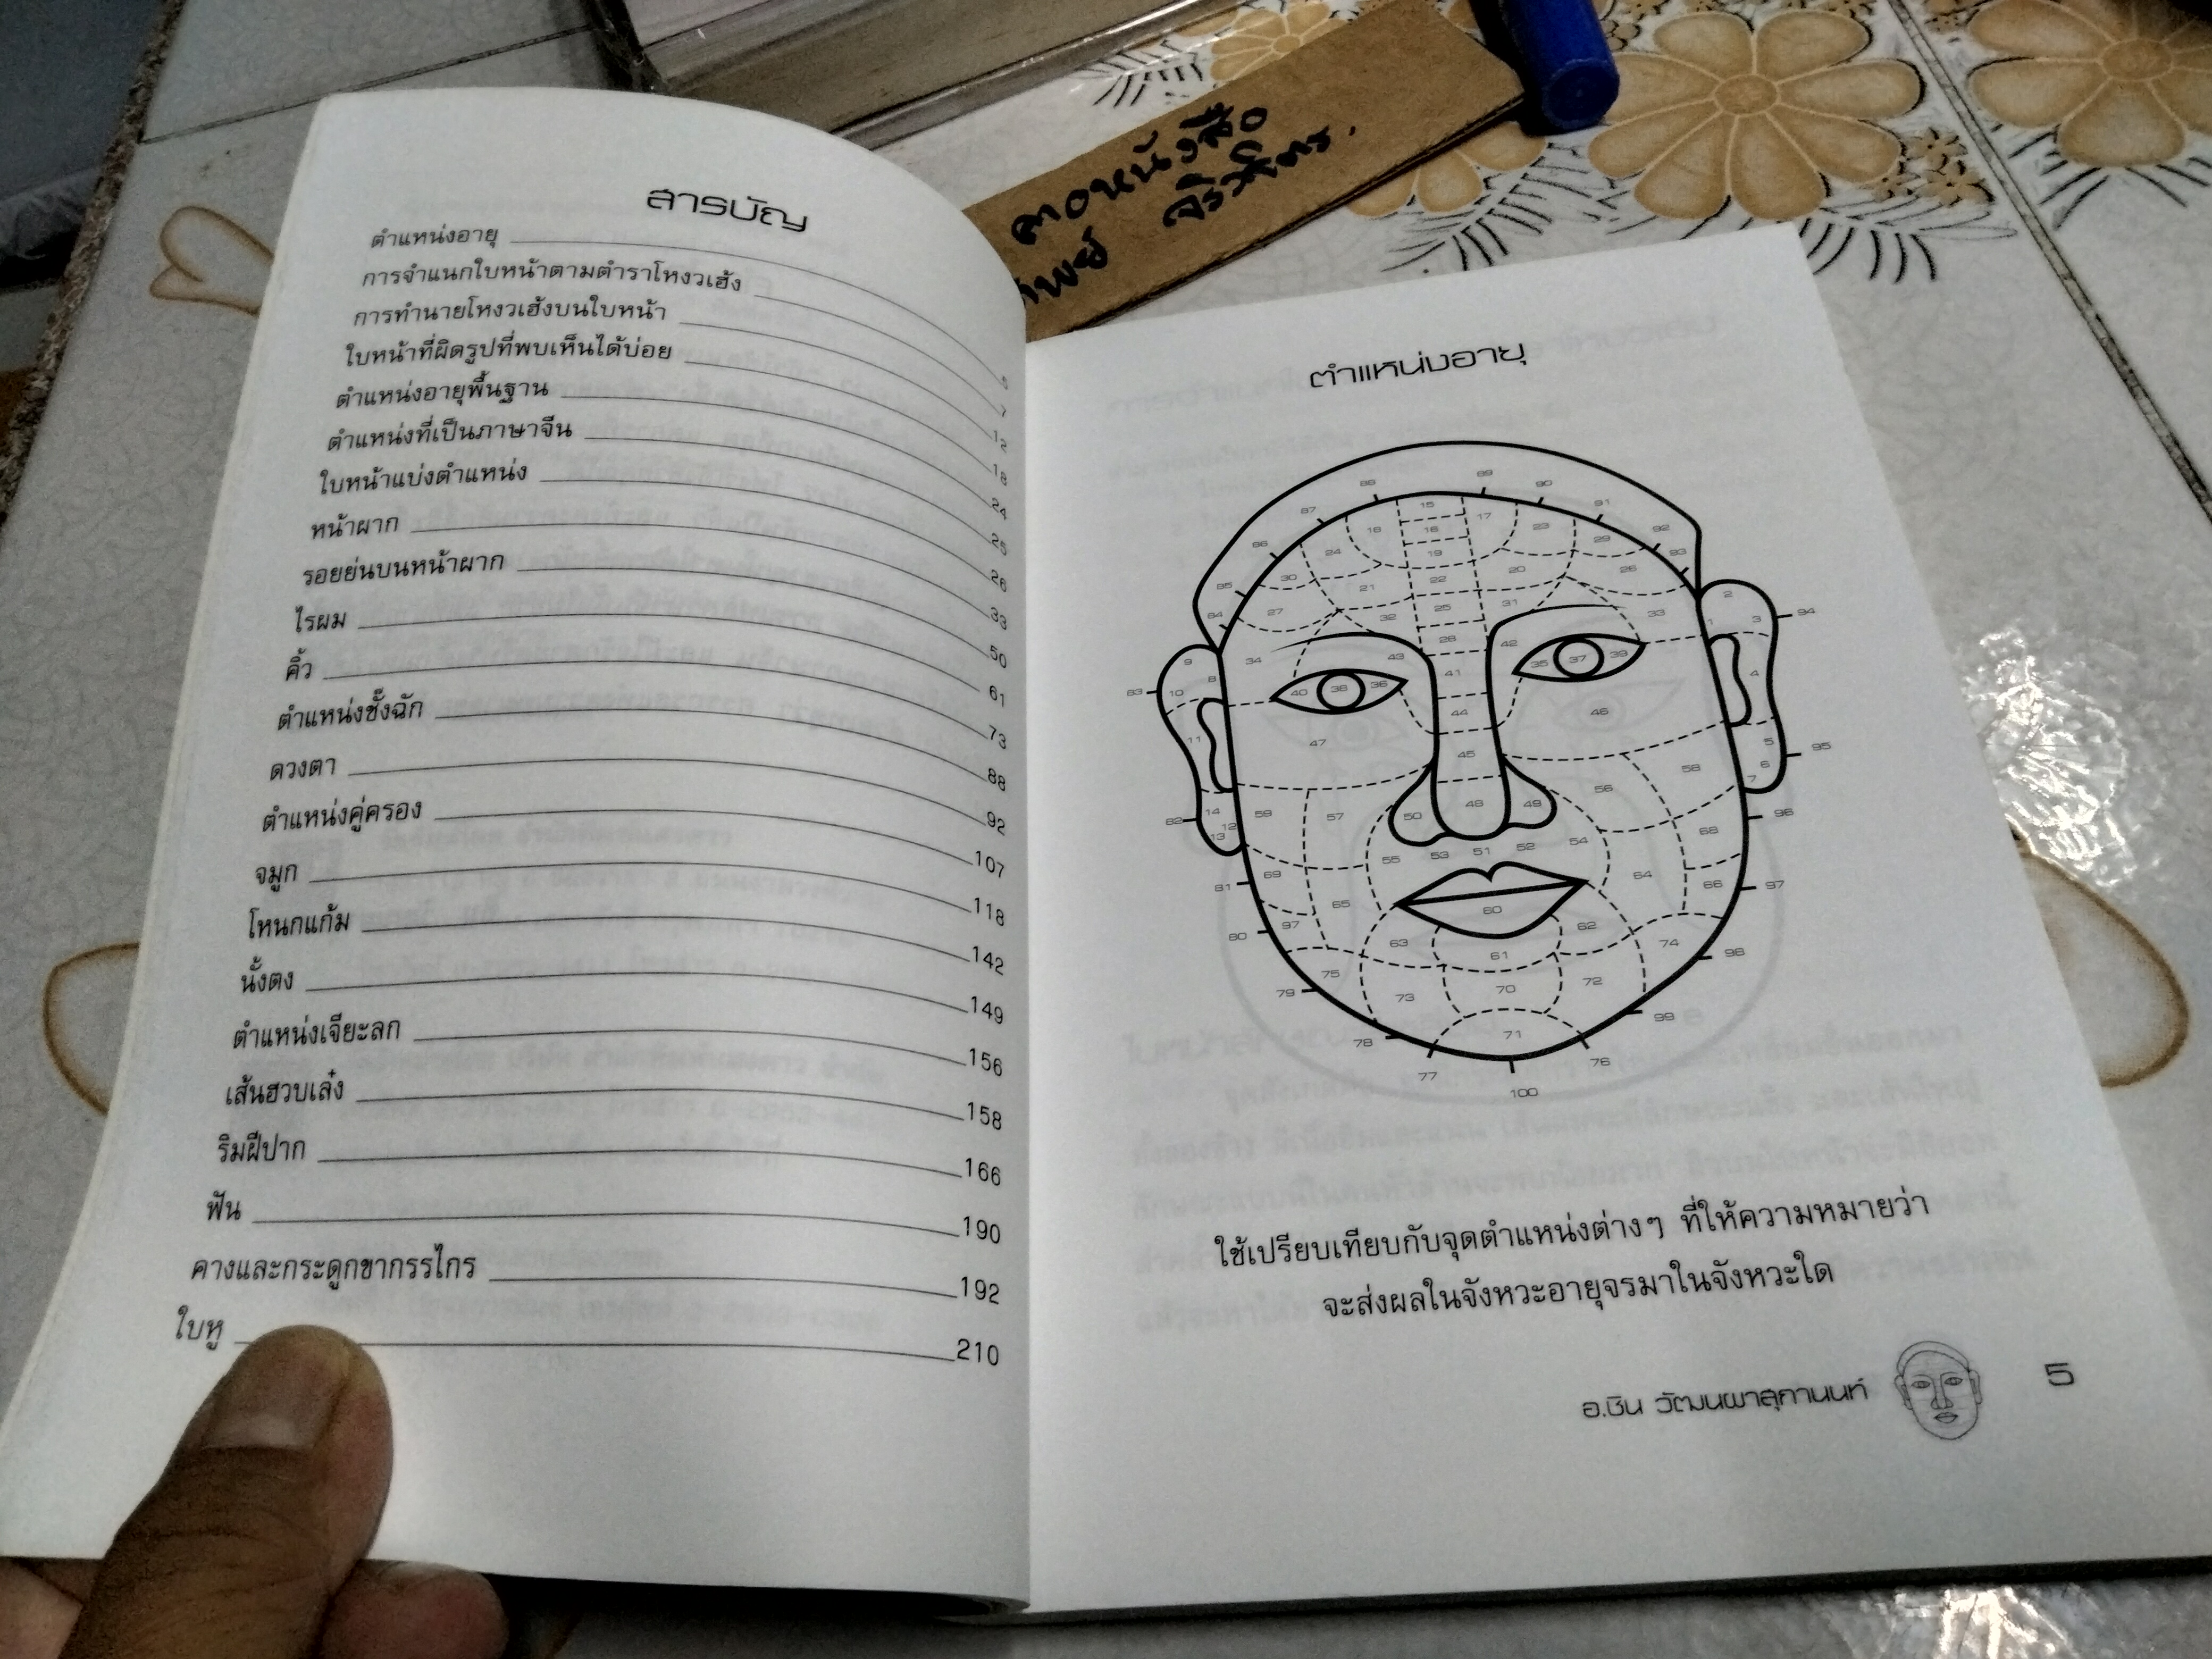 สารบัญ
ตำแหน่งอายุ 5
การจำแนกใบหน้าตามตำราโหงวเฮ้ง 7
การทำนายโหงวเฮ้งบนใบหน้า 12
ใบหน้าที่ผิดรูปที่พบเห็นได้บ่อย 18
ตำแหน่งอายุพื้นฐาน 24
ตำแหน่งที่เป็นภาษาจีน 25
ใบหน้าแบ่งตำแหน่ง 26
หน้าผาก 33
รอยย่นบนหน้าผาก 50
ไรผม 61
คิ้ว 73
ตำแหน่งชั้งฉัก 88
ดวงตา 92
ตำแหน่งคู่ครอง 107
จมูก 118
โหนกแก้ม 142
นั้งตง 149
ตำแหน่งเจียะลก 156
เส้นฮวบเล่ง 158
ริมฝีปาก 166
ฟัน 190
คางและกระดูกขากรรไกร 192
ใบหู 210
หนังสือ
ตำแหน่งอายุ
88 89 90
87 15 91
86 18 16 17 23 92
24 19 29 93
85 30 21 22 20 26
84 27 32 25 31 33 1 2 3 94
28 42
9 34 43 41 35 37 39
83 10 8 40 38 36 4
44 46
11 47 45 5 95
58 6
7
56
82 14 12 59 57 50 48 49 96
13
68
55 53 51 52 54
81 69 64 66 97
65 60
80 97 63 62 74
61 98
75 73 70 72
79
78 71 99
77 76
100
ใช้เปรียบเทียบกับจุดตำแหน่งต่างๆ ที่ให้ความหมายว่า
จะส่งผลในจังหวะอายุจรมาในจังหวะใด
อ.ชิน วัฒนผาสุกานนท์ 5